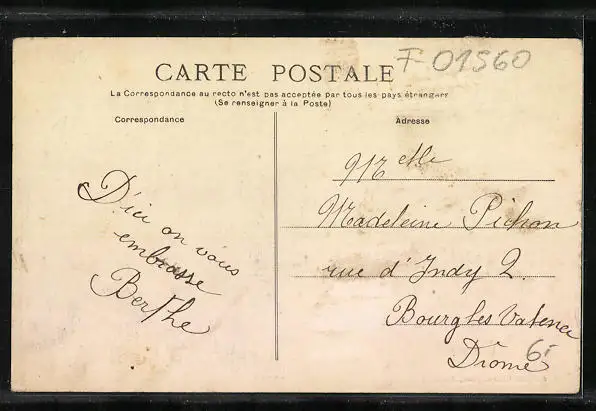 F 01560
CARTE POSTALE
La Correspondance au recto n'est pas acceptée par tous les pays étrangers
(Se renseigner à la Poste)
Correspondance
Adresse
D'ici on vous
embrasse
Berthe
Melle
Madeleine Pichon
rue d'Indy 2.
Bourg les Valence
Drôme
6.-